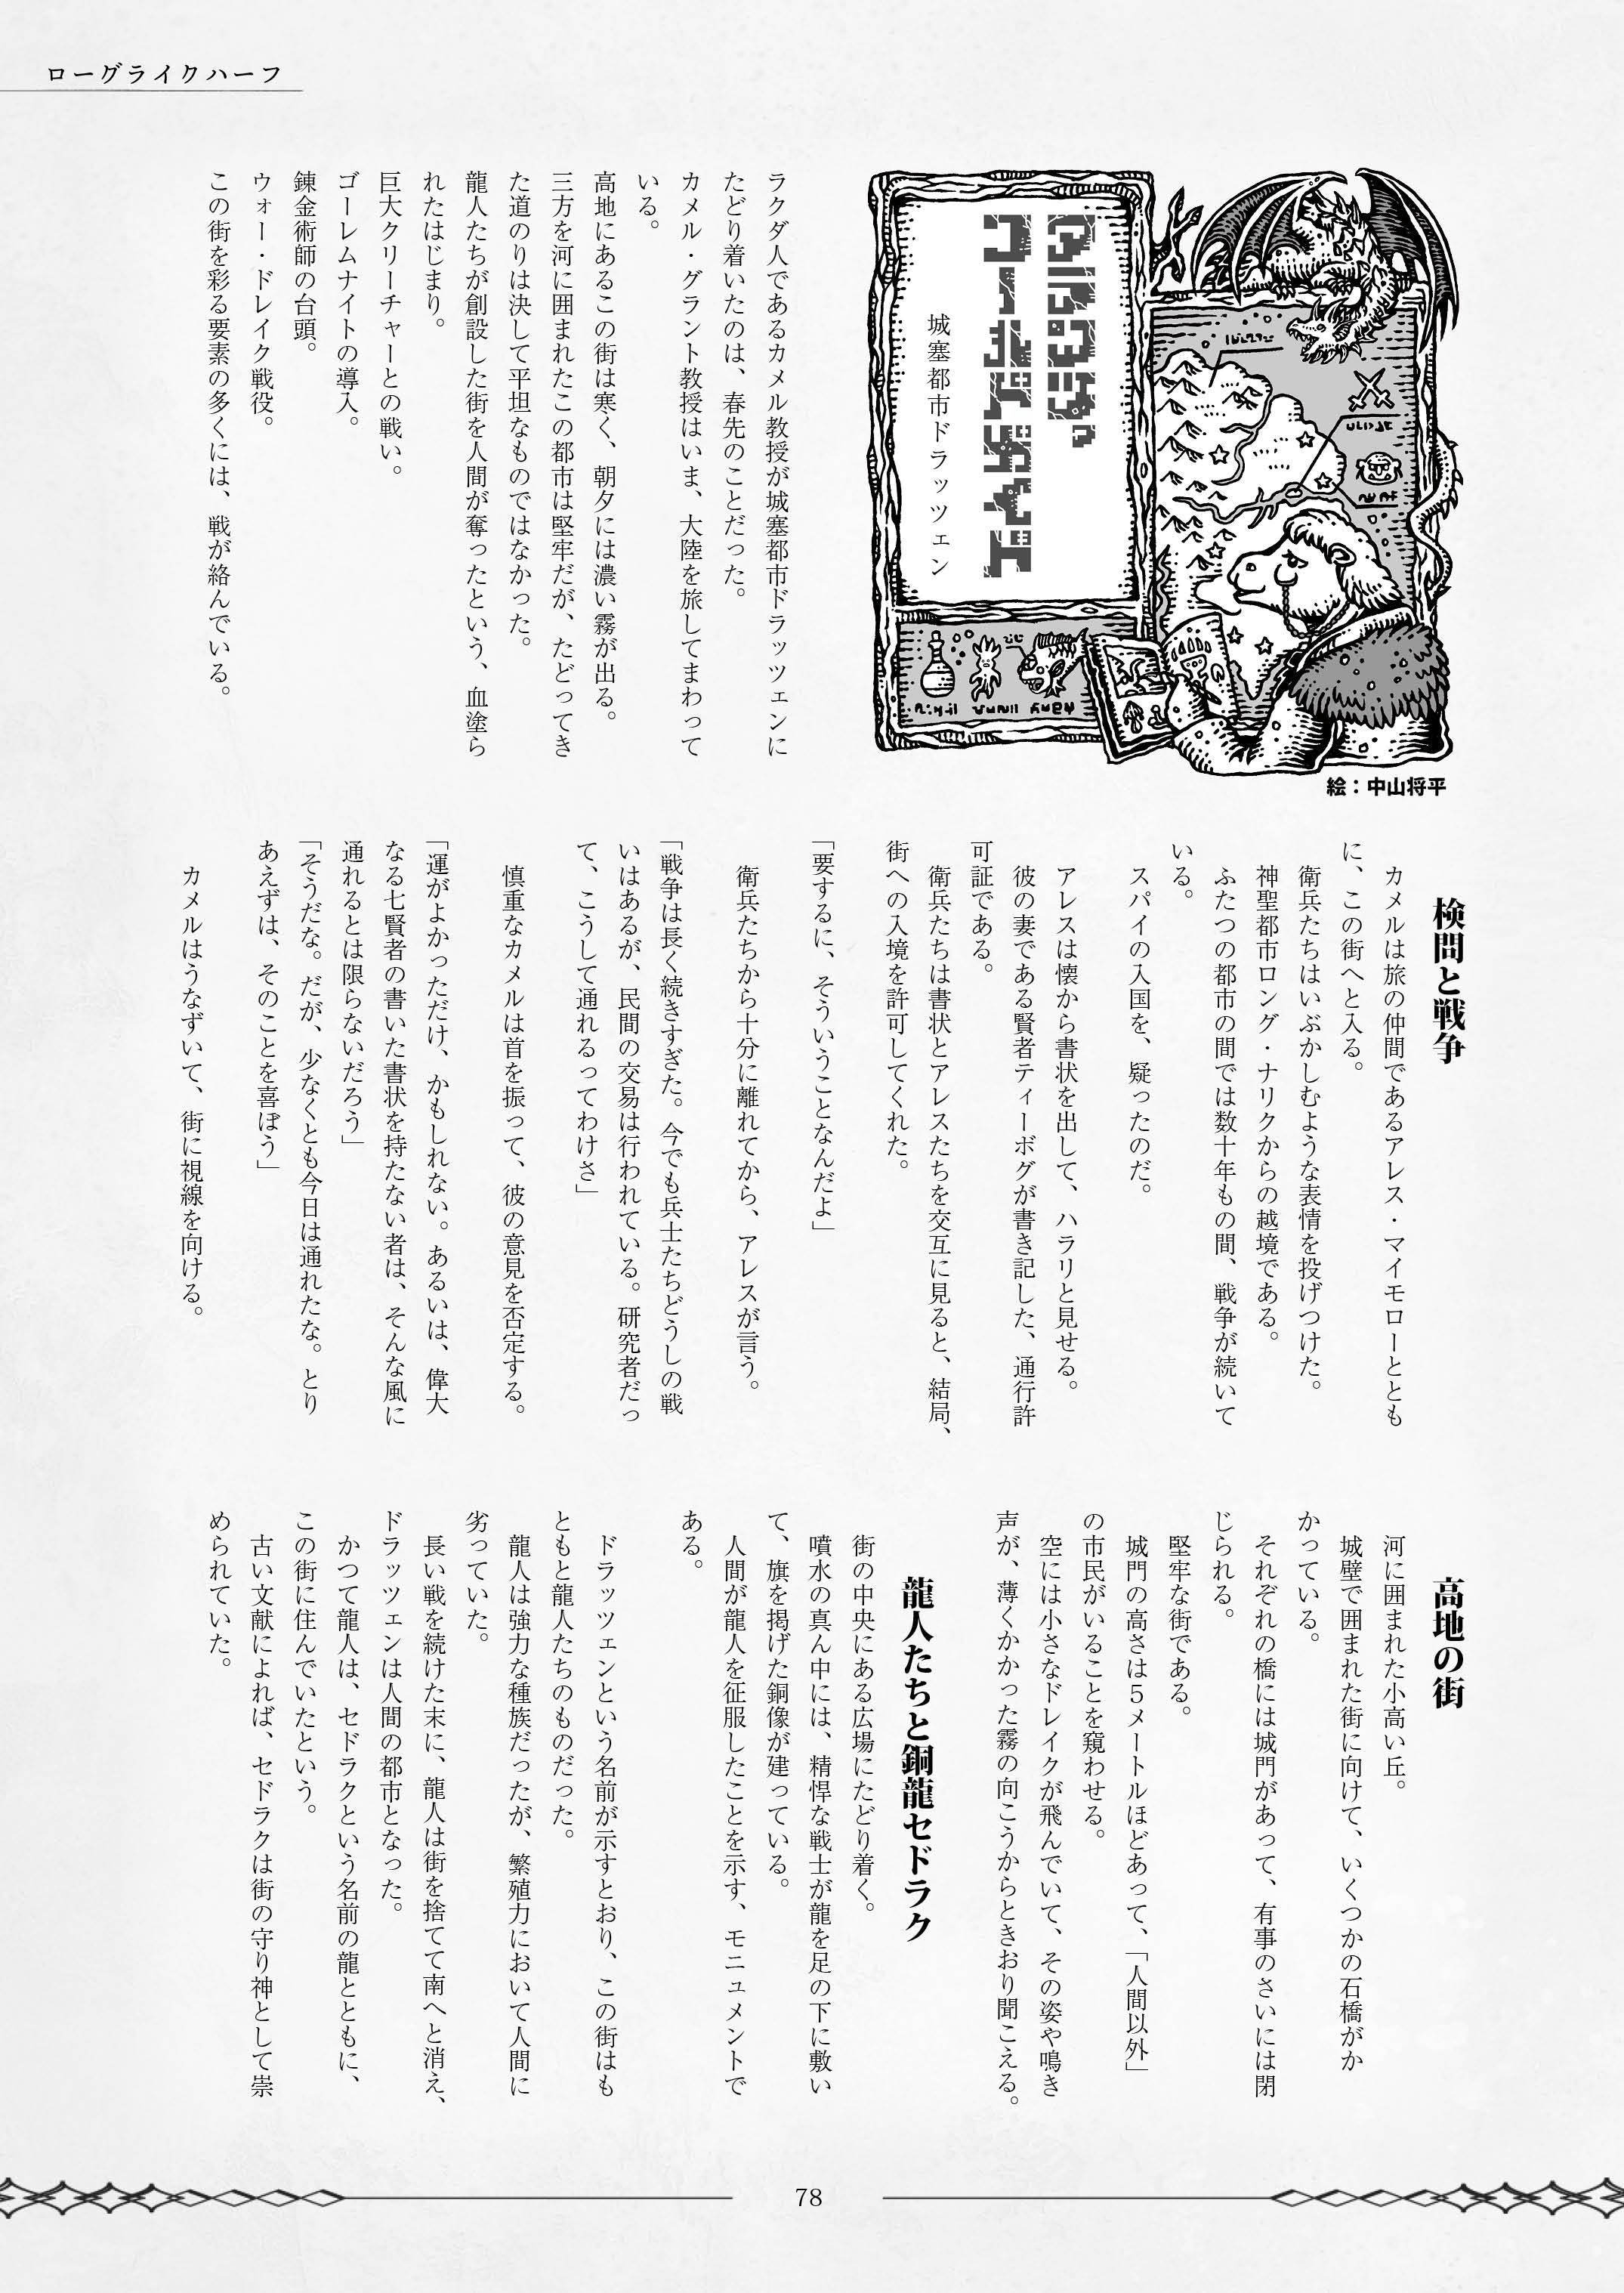 ローグライクハーフ
城塞都市ドラッツェン
絵：中山将平
ラクダ人であるカメル教授が城塞都市ドラッツェンに
たどり着いたのは、春先のことだった。
カメル・グラント教授はいま、大陸を旅してまわって
いる。
高地にあるこの街は寒く、朝夕には濃い霧が出る。
三方を河に囲まれたこの都市は堅牢だが、たどってき
た道のりは決して平坦なものではなかった。
龍人たちが創設した街を人間が奪ったという、血塗ら
れたはじまり。
巨大クリーチャーとの戦い。
ゴーレムナイトの導入。
錬金術師の台頭。
ウォー・ドレイク戦役。
この街を彩る要素の多くには、戦が絡んでいる。
検問と戦争
カメルは旅の仲間であるアレス・マイモローととも
に、この街へと入る。
衛兵たちはいぶかしむような表情を投げつけた。
神聖都市ロング・ナリクからの越境である。
ふたつの都市の間では数十年もの間、戦争が続いて
いる。
スパイの入国を、疑ったのだ。
アレスは懐から書状を出して、ハラリと見せる。
彼の妻である賢者ティーボグが書き記した、通行許
可証である。
衛兵たちは書状とアレスたちを交互に見ると、結局、
街への入境を許可してくれた。
「要するに、そういうことなんだよ」
衛兵たちから十分に離れてから、アレスが言う。
「戦争は長く続きすぎた。今でも兵士たちどうしの戦
いはあるが、民間の交易は行われている。研究者だっ
て、こうして通れるってわけさ」
慎重なカメルは首を振って、彼の意見を否定する。
「運がよかっただけ、かもしれない。あるいは、偉大
なる七賢者の書いた書状を持たない者は、そんな風に
通れるとは限らないだろう」
「そうだな。だが、少なくとも今日は通れたな。とり
あえずは、そのことを喜ぼう」
カメルはうなずいて、街に視線を向ける。
高地の街
河に囲まれた小高い丘。
城壁で囲まれた街に向けて、いくつかの石橋がか
かっている。
それぞれの橋には城門があって、有事のさいには閉
じられる。
堅牢な街である。
城門の高さは５メートルほどあって、「人間以外」
の市民がいることを窺わせる。
空には小さなドレイクが飛んでいて、その姿や鳴き
声が、薄くかかった霧の向こうからときおり聞こえる。
龍人たちと銅龍セドラク
街の中央にある広場にたどり着く。
噴水の真ん中には、精悍な戦士が龍を足の下に敷い
て、旗を掲げた銅像が建っている。
人間が龍人を征服したことを示す、モニュメントで
ある。
ドラッツェンという名前が示すとおり、この街はも
ともと龍人たちのものだった。
龍人は強力な種族だったが、繁殖力において人間に
劣っていた。
長い戦を続けた末に、龍人は街を捨てて南へと消え、
ドラッツェンは人間の都市となった。
かつて龍人は、セドラクという名前の龍とともに、
この街に住んでいたという。
古い文献によれば、セドラクは街の守り神として崇
められていた。
78